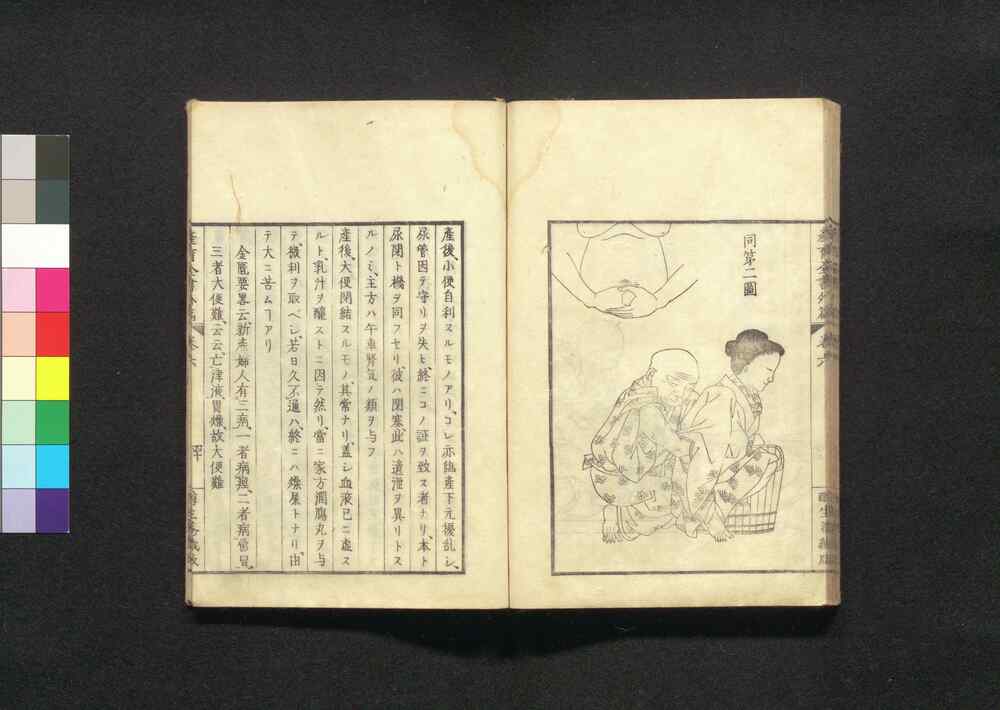 同第二圖
產後、小便自利スルモノアリ、コレ亦臨產下元擾乱シ、
尿管因テ守リヲ失ヒ、終ニコノ証ヲ致ス者ナリ、本ト
尿閉ト機ヲ同フセリ、彼ハ閉塞、此ハ遺泄ヲ異リトス
ルノミ、主方ハ午車腎氣ノ類ヲ与フ
產後、大便閉結スルモノ、其常ナリ、蓋シ血液已ニ虚ス
ルト、乳汁ヲ釀ストニ因テ然リ、當ニ家方潤腸丸ヲ与
テ、機利ヲ取ベシ、若日久不通ハ、終ニハ燥屎トナリ、由
テ大ニ苦ムヿアリ
金匱要畧云、新產婦人有三病、一者病痙、二者病欝冒、
三者大便難、云云、亡津液胃燥、故大便難
產育全書外篇
卷六